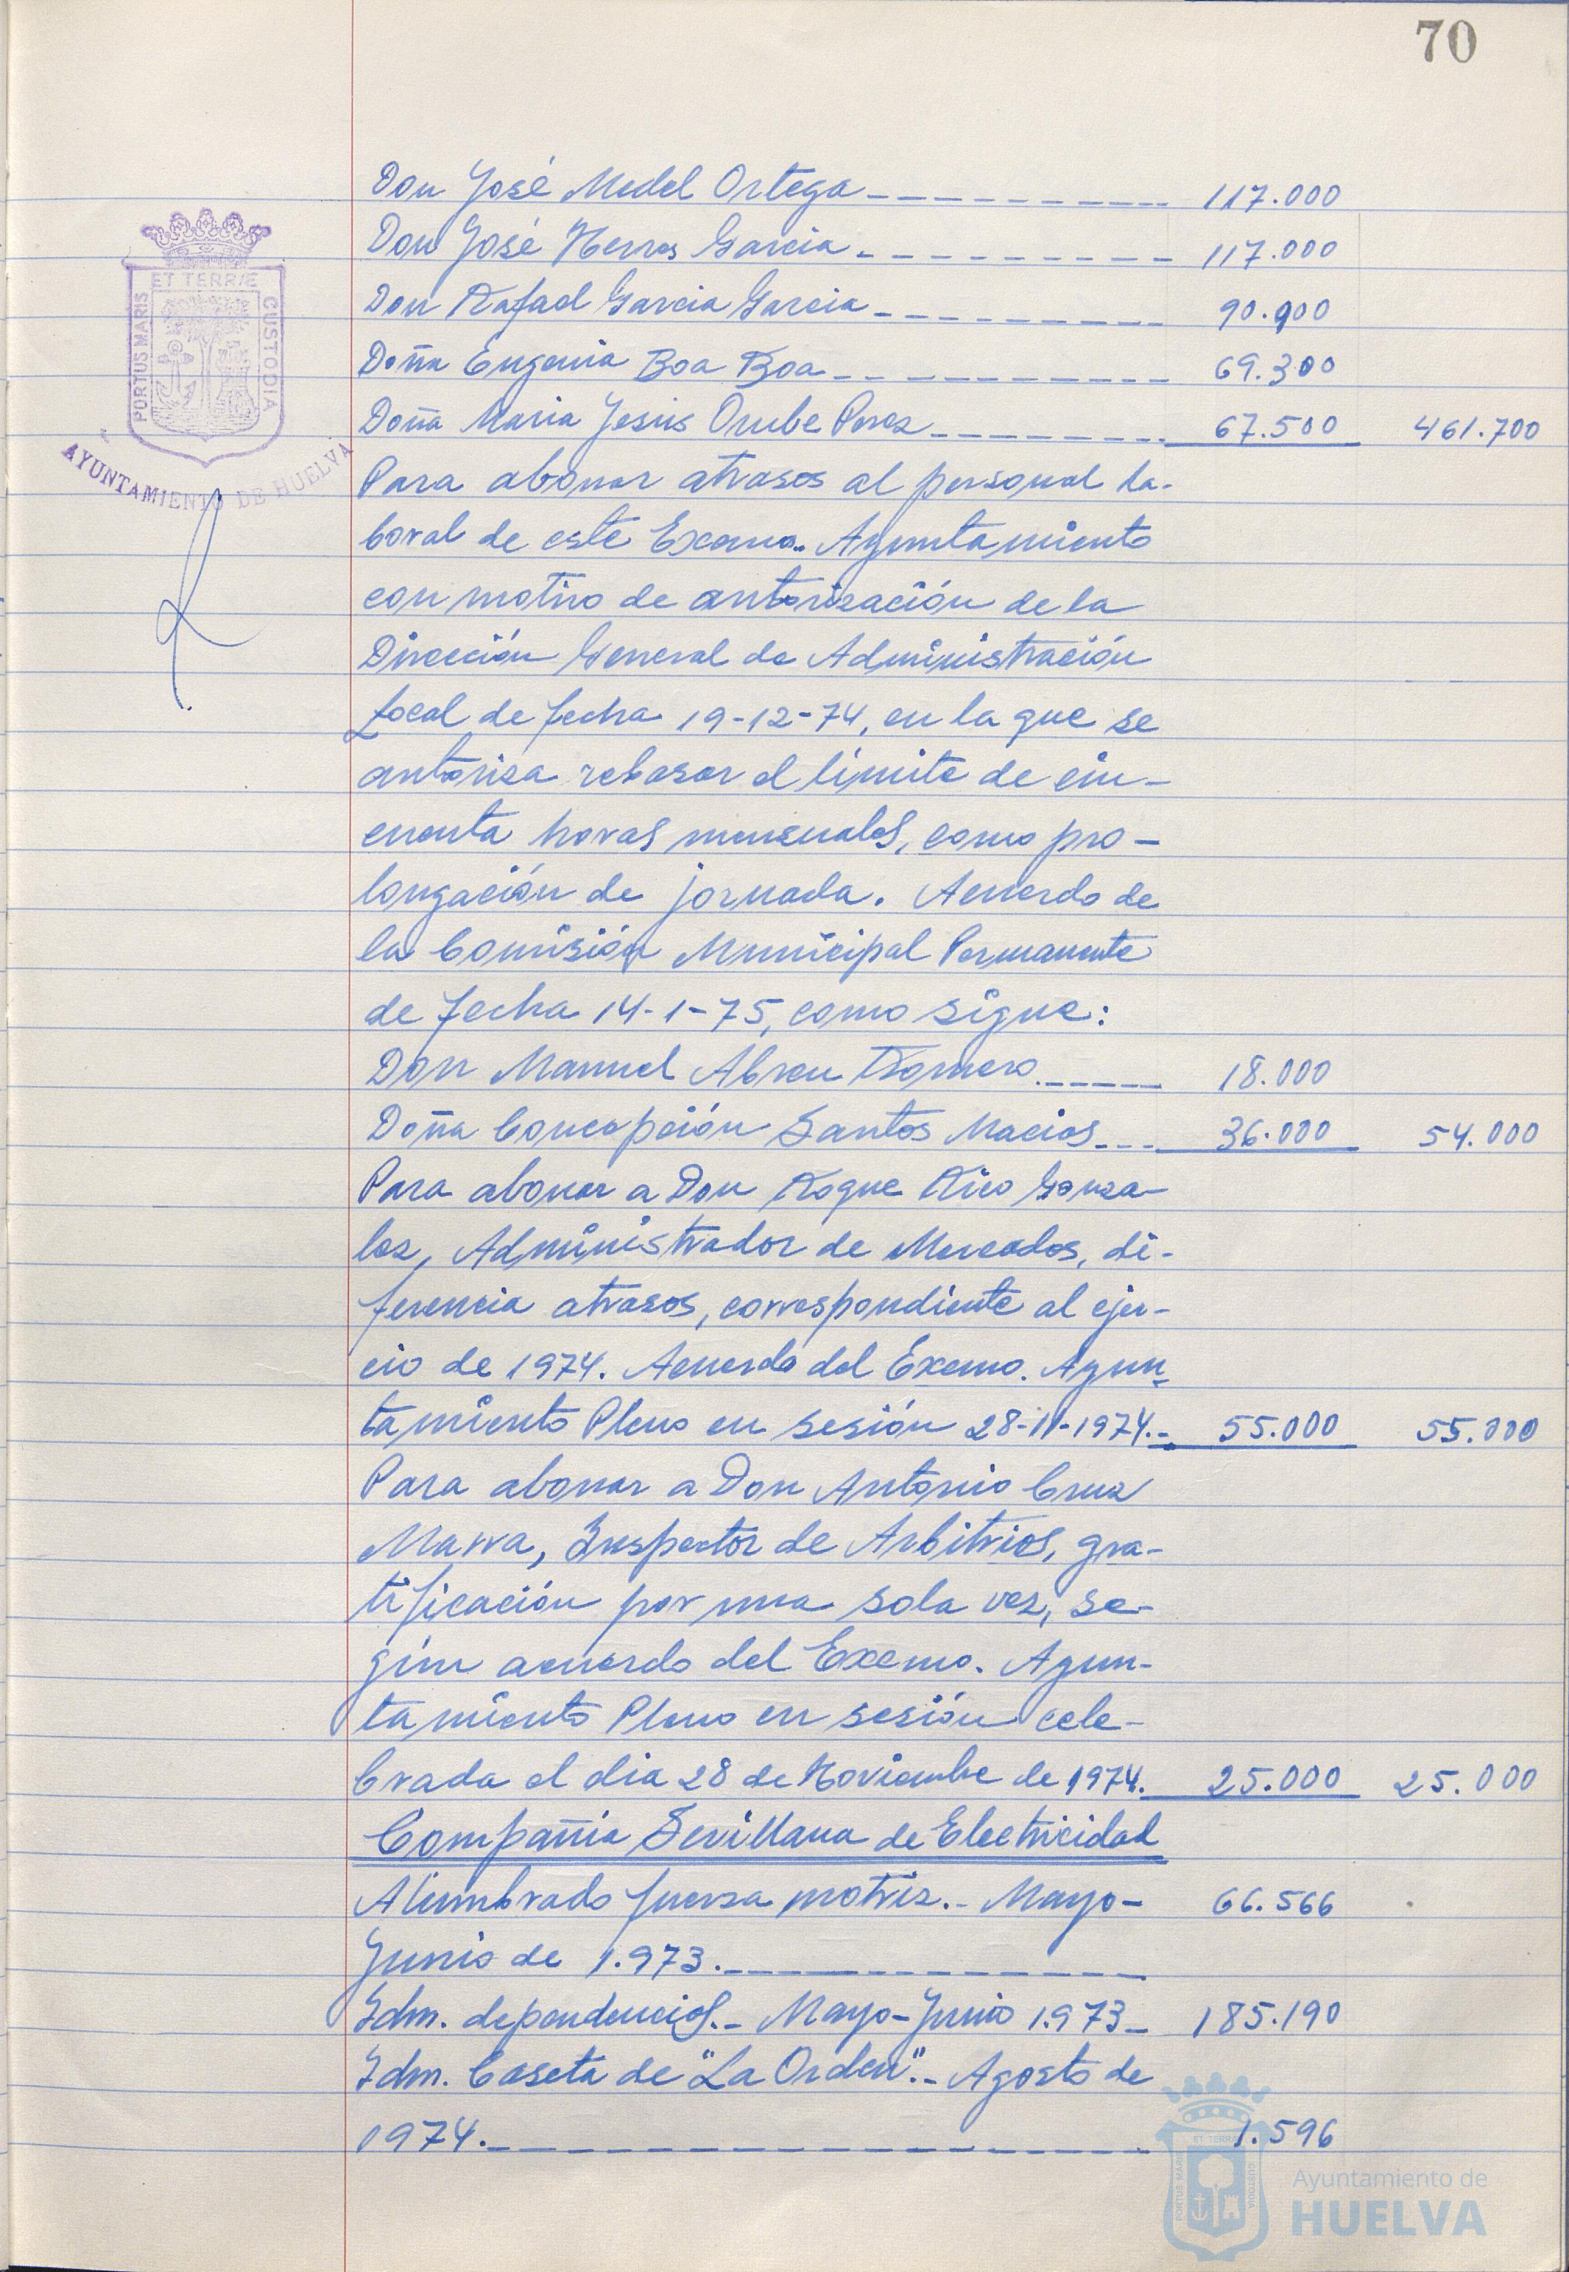 70
Don José Medel Ortega 117.000
Don José Herves Garcia 117.000
Don Rafael Garcia Garcia 90.900
Doña Eugenia Boa Boa 69.300
Doña Maria Jesús Orube Perez 67.500 461.700
Para abonar atrasos al personal la-
boral de este Excmo. Ayuntamiento
con motivo de autorización de la
Dirección General de Administración
Local de fecha 19-12-74, en la que se
autoriza rebasar el límite de cin-
cuenta horas mensuales, como pro-
longación de jornada. Acuerdo de
la Comisión Municipal Permanente
de fecha 14-1-75, como sigue:
Don Manuel Abreu Romero 18.000
Doña Concepción Santos Macias 36.000 54.000
Para abonar a Don Roque Rico Gonza-
lez, Administrador de Mercados, di-
ferencia atrasos, correspondiente al ejer-
cio de 1974. Acuerdo del Excmo. Ayun-
tamiento Pleno en sesión 28-11-1974.- 55.000 55.000
Para abonar a Don Antonio Cruz
Marra, Inspector de Arbitrios, gra-
tificación por una sola vez, se-
gún acuerdo del Excmo. Ayun-
tamiento Pleno en sesión cele-
brada el dia 28 de Noviembre de 1974. 25.000 25.000
Compañia Sevillana de Electricidad
Alumbrado fuerza motriz.- Mayo- 66.566
Junio de 1.973.
Idm. dependencias.- Mayo-Junio 1.973 185.190
Idm. Caseta de "La Orden".- Agosto de
1974. 1.596
ET TERRÆ
PORTUS MARIS
CUSTODIA
AYUNTAMIENTO DE HUELVA
Ayuntamiento de
HUELVA